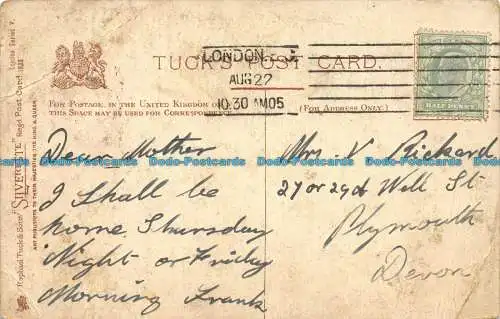 TUCK'S POST CARD.
LONDON
AUG 22
10.30 AM 05
HALF PENNY
FOR POSTAGE, IN THE UNITED KINGDOM ONLY
THIS SPACE MAY BE USED FOR CORRESPONDENCE.
(FOR ADDRESS ONLY.)
Dear Mother
I Shall be
home Thursday
Night or Friday
Morning Frank
Mrs V Rickard
27 or 29 Well St
Plymouth
Devon
Raphael Tuck & Sons' "SILVERETTE" Regd Post Card
ART PUBLISHERS TO THEIR MAJESTIES THE KING & QUEEN.
Dodo-Postcards Dodo-Postcards Dodo-Postcards Dodo-Postcards Dodo-Postcards